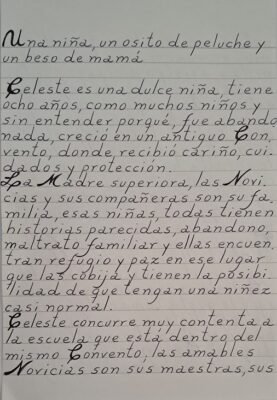 Una niña, un osito de peluche y
un beso de mamá
Celeste es una dulce niña, tiene
ocho años, como muchos niños y
sin entender porqué, fue abando
nada, creció en un antiguo Con,
vento, donde recibió cariño, cui,
dados y protección.
La Madre superiora, las Novi,
cias y sus compañeras son su fa,
milia, esas niñas, todas tienen
historias parecidas, abandono,
maltrato familiar y ellas encuen,
tran refugio y paz en ese lugar
que las cobija y tienen la posibi,
lidad de que tengan una niñez
casi normal.
Celeste concurre muy contenta a
la escuela que está dentro del
mismo Convento, las amables
Novicias son sus maestras, sus